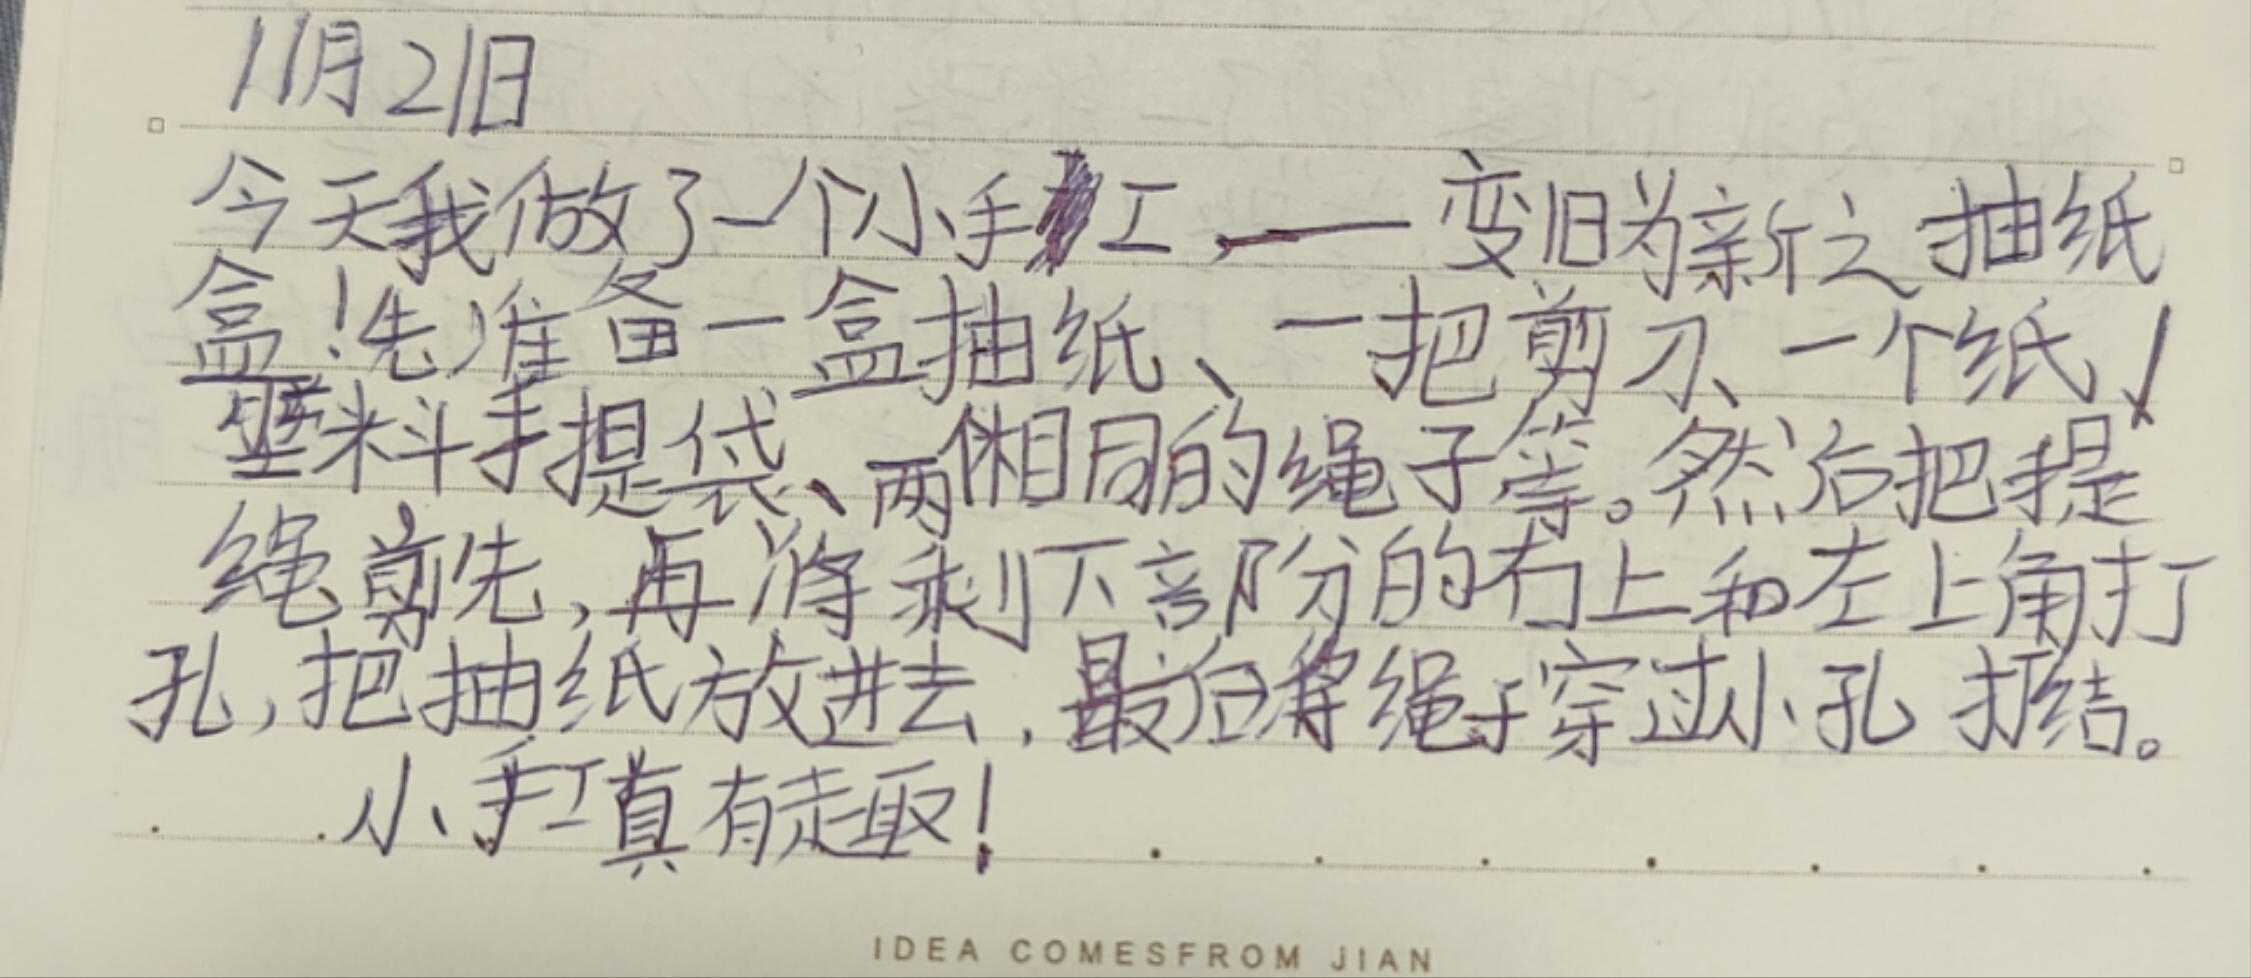 11月21日
今天我做了一个小手工,——变旧为新之抽纸
盒!先准备一盒抽纸、一把剪刀、一个纸/
塑料手提袋、两个相同的绳子等。然后把提
绳剪先,再将剩下部份的右上和左上角打
孔,把抽纸放进去,最后将绳子穿过小孔 打结。
小手工真有趣!
IDEA COMESFROM JIAN